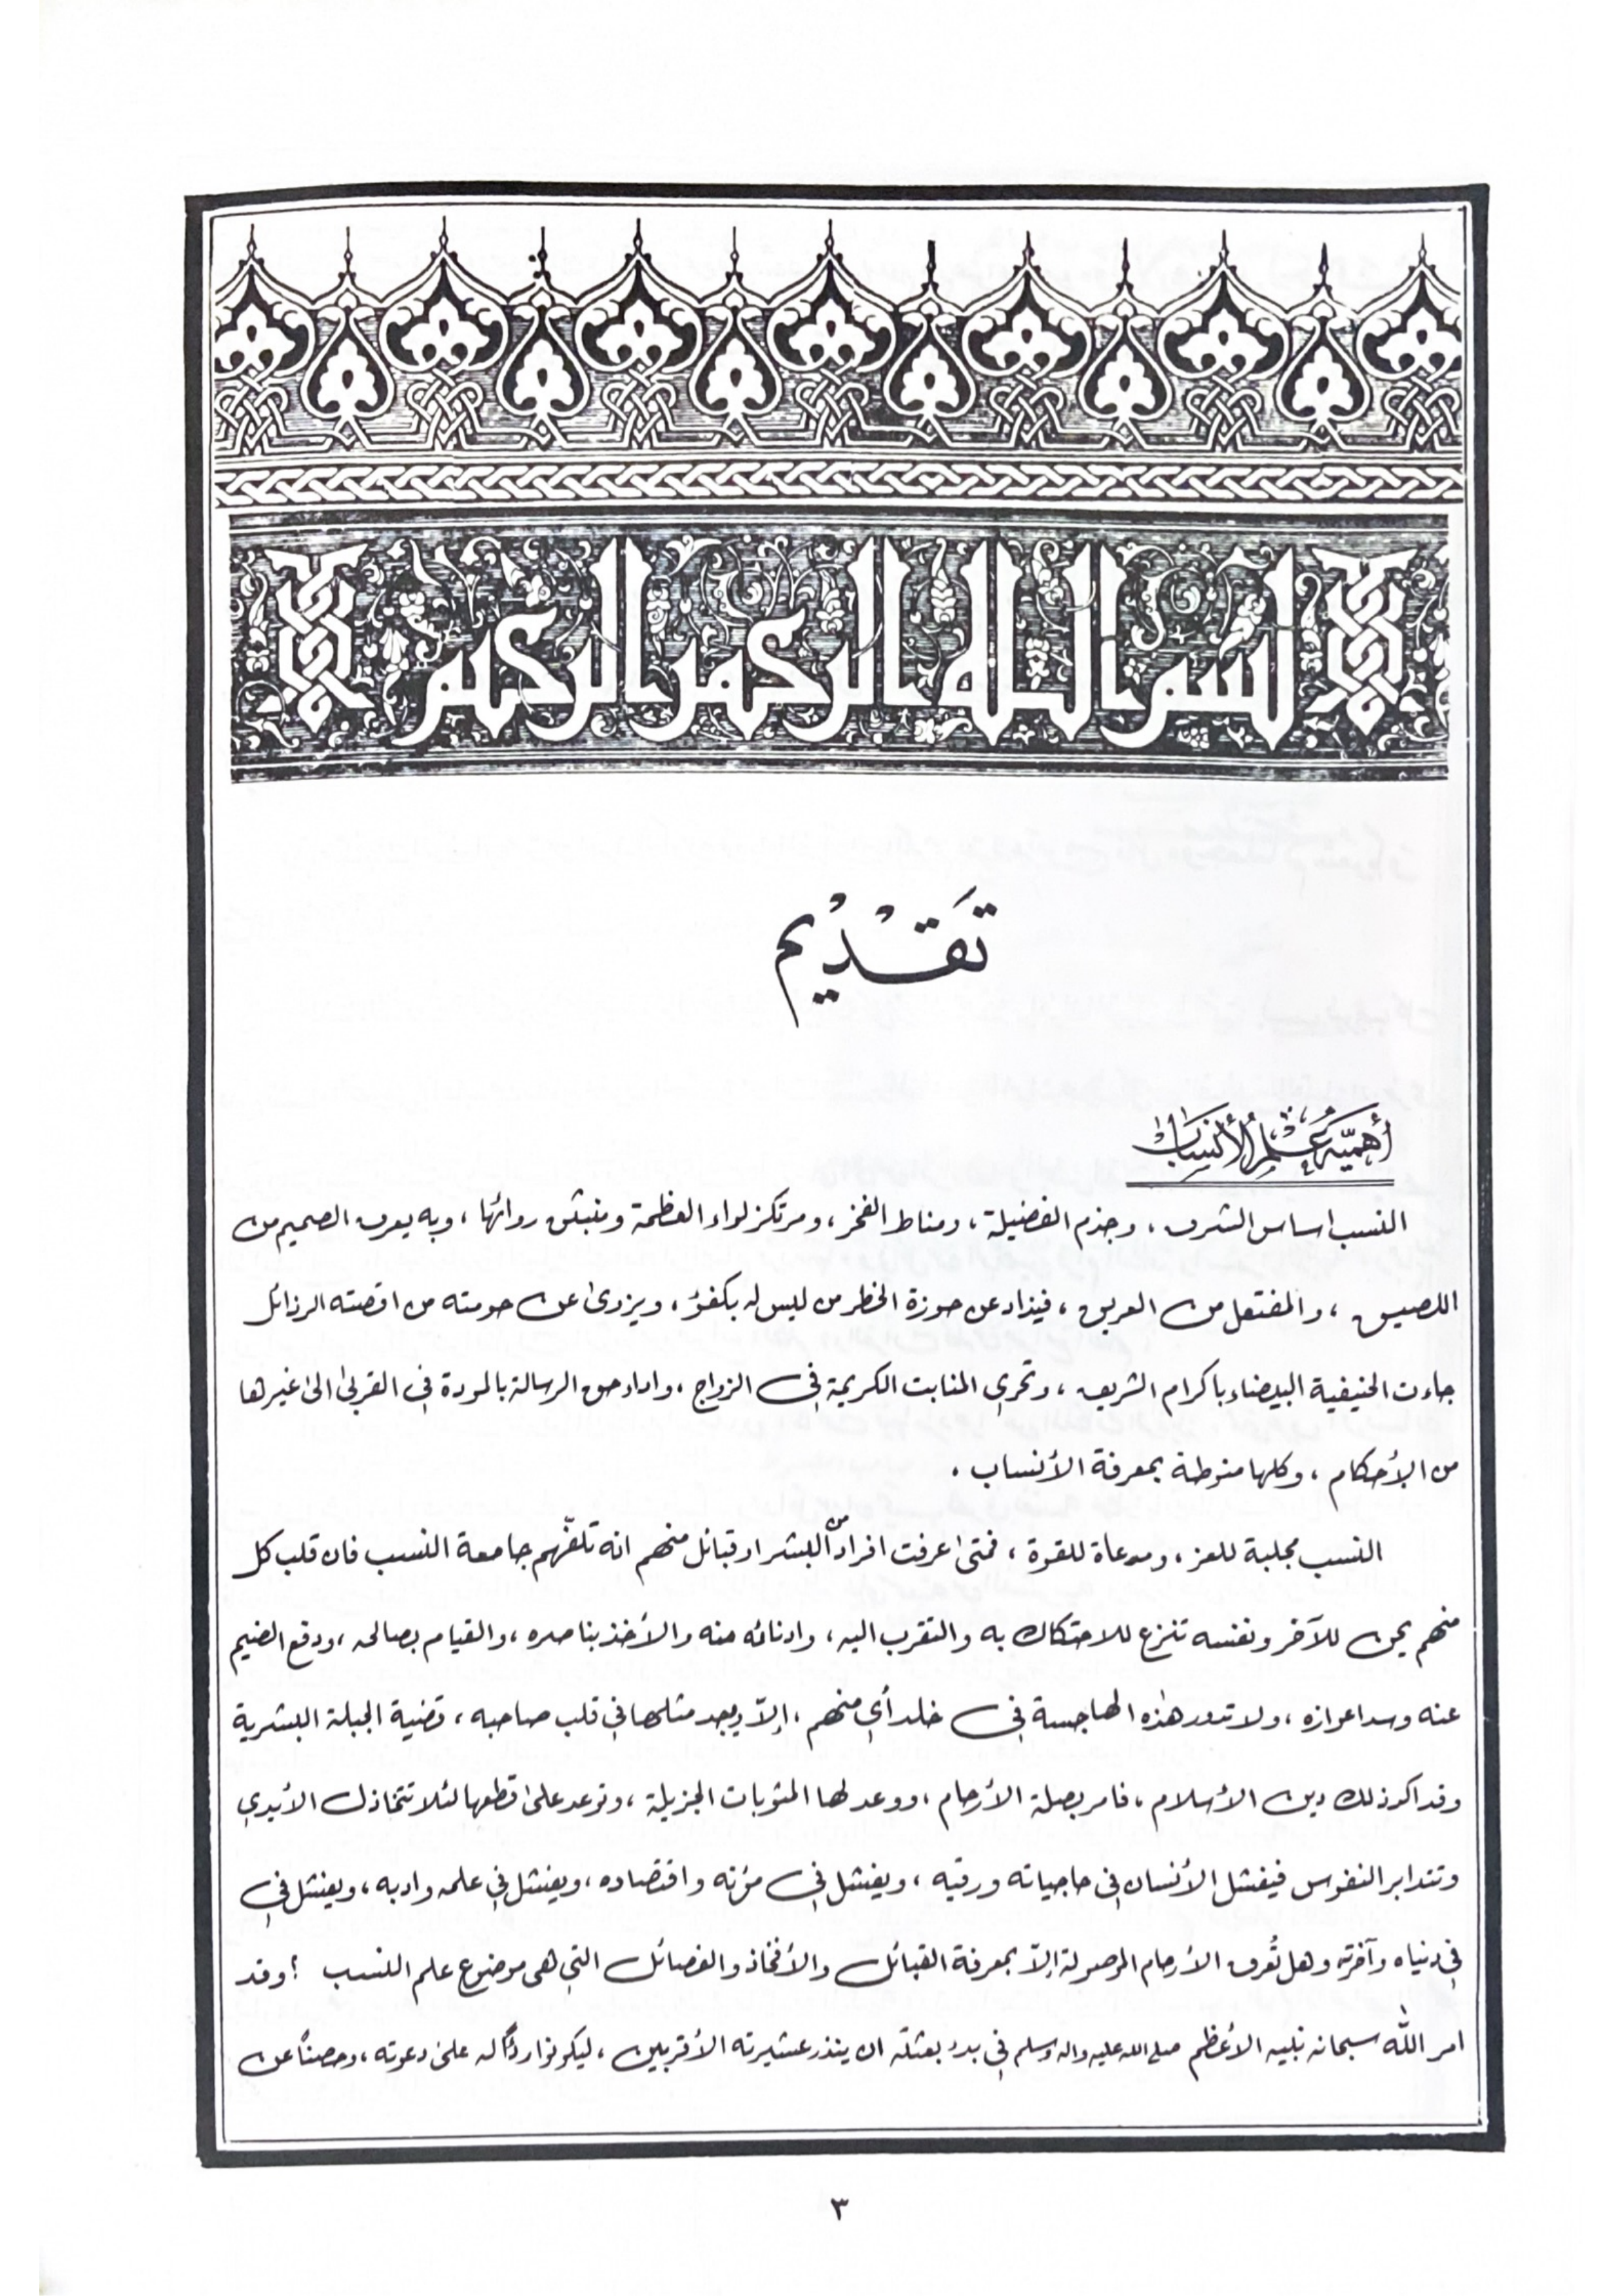 بسم الله الرحمن الرحيم
تَقْدِيْم
أهميّة عِلْمِ الأنسَابْ
النسب اساس الشرف ، وجذم الفضيلة ، ومناط الفخر ، ومرتكز لواء العظمة ومنبثق روائها ، وبه يعرف الصميم من
اللصيق ، والمفتعل من العريق ، فيذاد عن حوزة الخطر من ليس له بكفؤ ، ويزدى عن حومته من اقصته الرذائل
جاءت الحنيفية البيضاء باكرام الشريف ، وتحري المنابت الكريمة في الزواج ، واداء حق الرسالة بالمودة في القربى الى غيرها
من الأحكام ، وكلها منوطة بمعرفة الأنساب .
النسب مجلبة للعز ، ومدعاة للقوة ، فمتى اعرفت افراد من البشر او قبائل منهم انه تلفّهم جامعة النسب فان قلب كل
منهم يحن للآخر ونفسه تنزع للاحتكاك به والتقرب اليه ، وادنائه منه والأخذ بناصره ، والقيام بصالحه ، ودفع الضيم
عنه وسد اعوازه ، ولا تدور هذه الهاجسة في خلد أي منهم ، إلاّ ويجد مثلها في قلب صاحبه ، قضية الجبلة البشرية
وقد اكد ذلك دين الأسلام ، فامر بصلة الأرحام ، ووعد لها المثوبات الجزيلة ، وتوعد على قطعها لئلا تتخاذل الأيدي
وتتدابر النفوس فيفشل الأنسان في حاجياته ورقيه ، ويفشل في مؤنه واقتصاده ، ويفشل في علمه وادبه ، ويفشل في
في دنياه وآخرته وهل تُعرف الأرحام الموصولة إلاّ بمعرفة القبائل والأفخاذ والفصائل التي هي موضوع علم النسب ؟ وقد
امر اللّٰه سبحانه نبيه الأعظم صلى الله عليه واله وسلم في بدء بعثته ان ينذر عشيرته الأقربين ، ليكونوا ردْاً له على دعوته ، وحصناً عن
٣